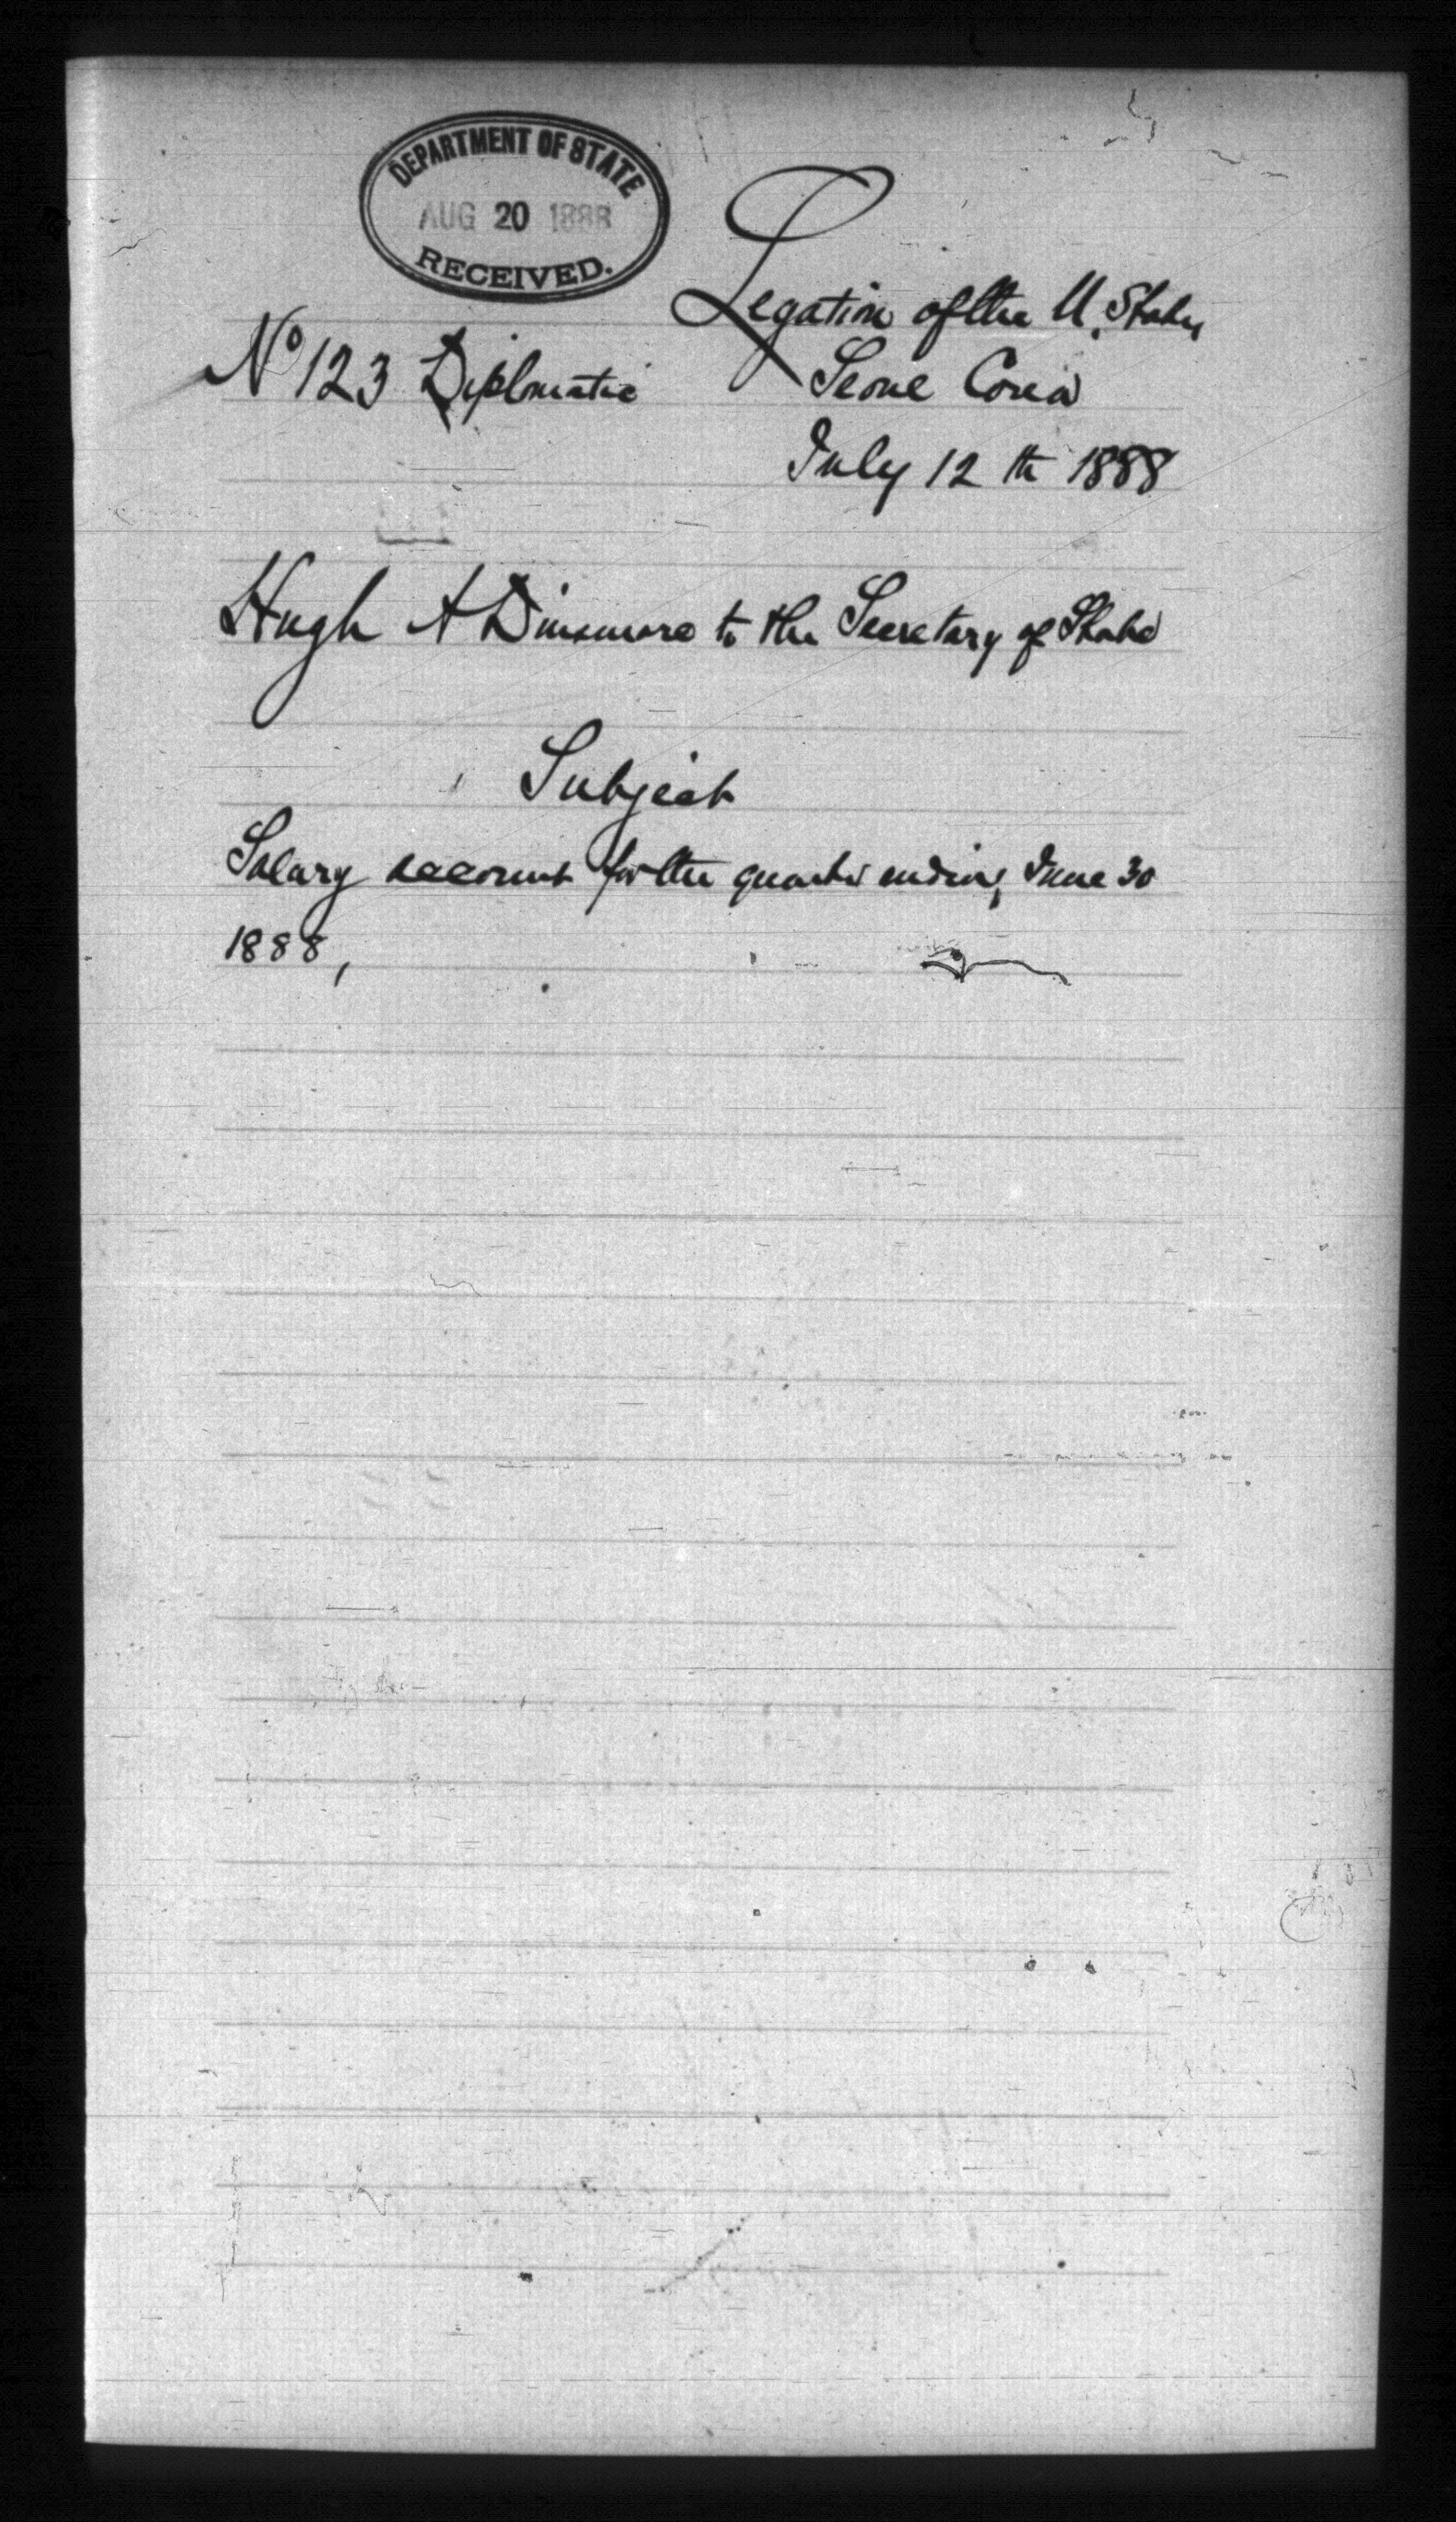 DEPARTMENT OF STATE
AUG 20 1888
RECEIVED.
Legation of the U. States
No 123 Diplomatic
Seoul Corea
July 12 th 1888
Hugh A Dinsmore to the Secretary of State
Subject
Salary account for the quarter ending June 30
1888,